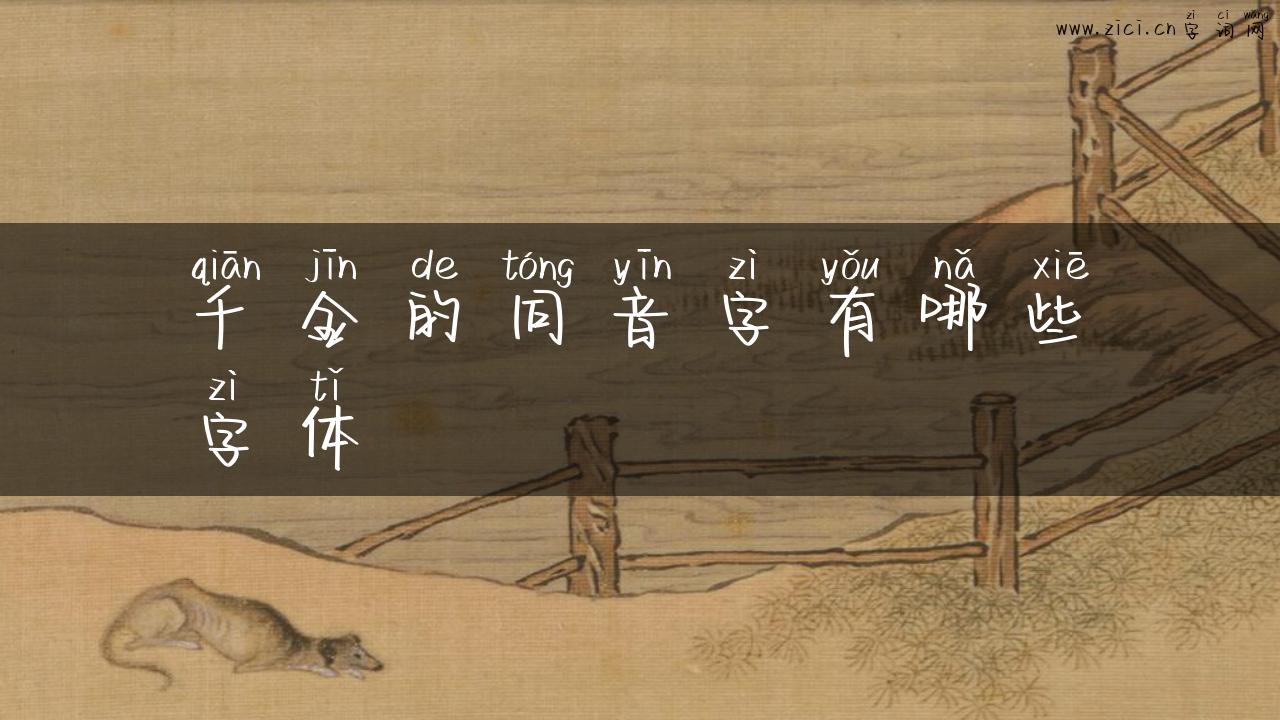 zì cí wǎng
www.zici.cn 字词网
qiān jīn de tóng yīn zì yǒu nǎ xiē
千金的同音字有哪些
zì tǐ
字体